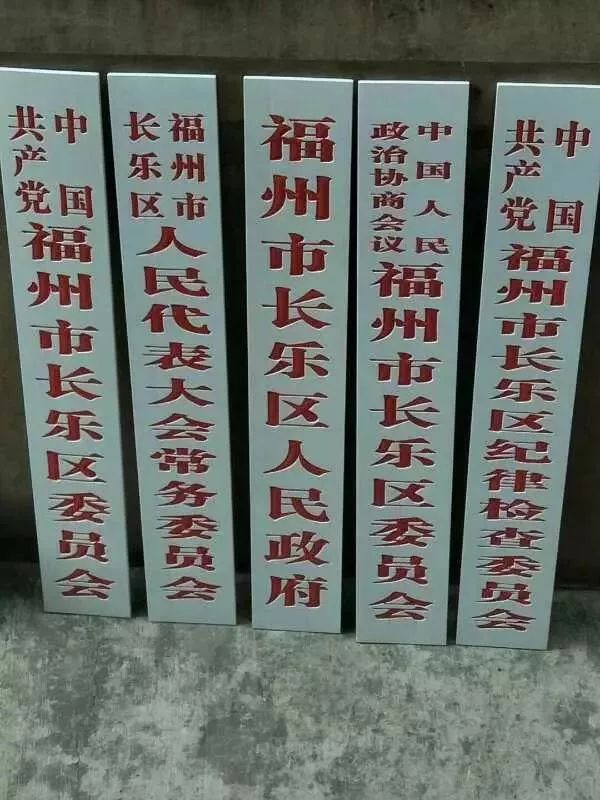 中国共产党福州市长乐区委员会
福州市长乐区人民代表大会常务委员会
福州市长乐区人民政府
中国人民政治协商会议福州市长乐区委员会
中国共产党福州市长乐区纪律检查委员会